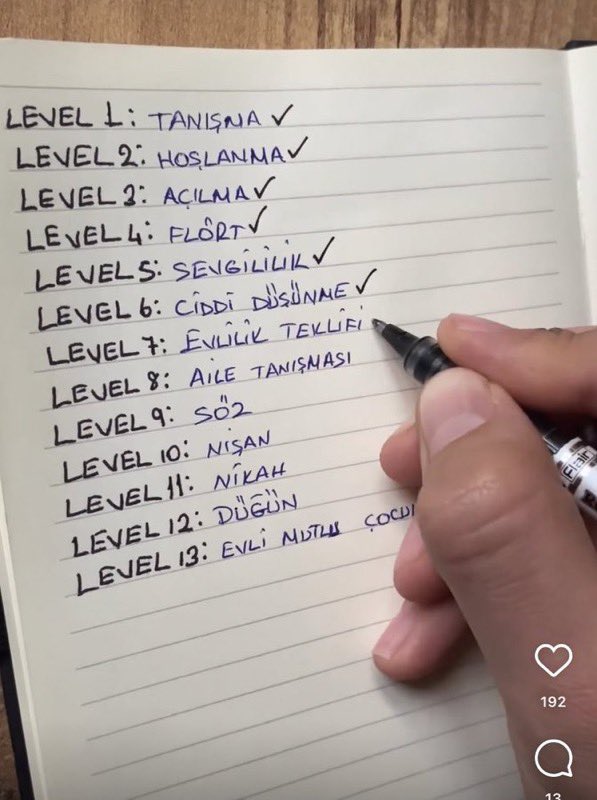 LEVEL 1: TANIŞMA ✓
LEVEL 2: HOŞLANMA ✓
LEVEL 3: AÇILMA ✓
LEVEL 4: FLÖRT ✓
LEVEL 5: SEVGİLİLİK ✓
LEVEL 6: CİDDİ DÜŞÜNME ✓
LEVEL 7: EVLİLİK TEKLİFİ
LEVEL 8: AİLE TANIŞMASI
LEVEL 9: SÖZ
LEVEL 10: NİŞAN
LEVEL 11: NİKAH
LEVEL 12: DÜĞÜN
LEVEL 13: EVLİ MUTLU
192
13